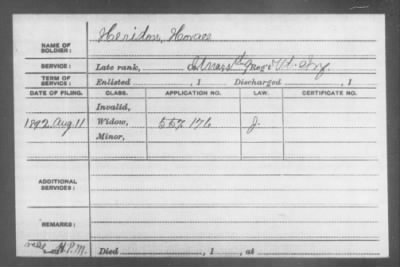 Heridon, Horace
NAME OF SOLDIER:
SERVICE: Late rank, Reg't Vt. Inf.
TERM OF SERVICE: Enlisted , 1 Discharged , 1
DATE OF FILING. CLASS. APPLICATION NO. LAW. CERTIFICATE NO.
Invalid,
1892, Aug. 11 Widow, 557.176 J.
Minor,
ADDITIONAL SERVICES:
REMARKS:
P.M. Died , 1 , at